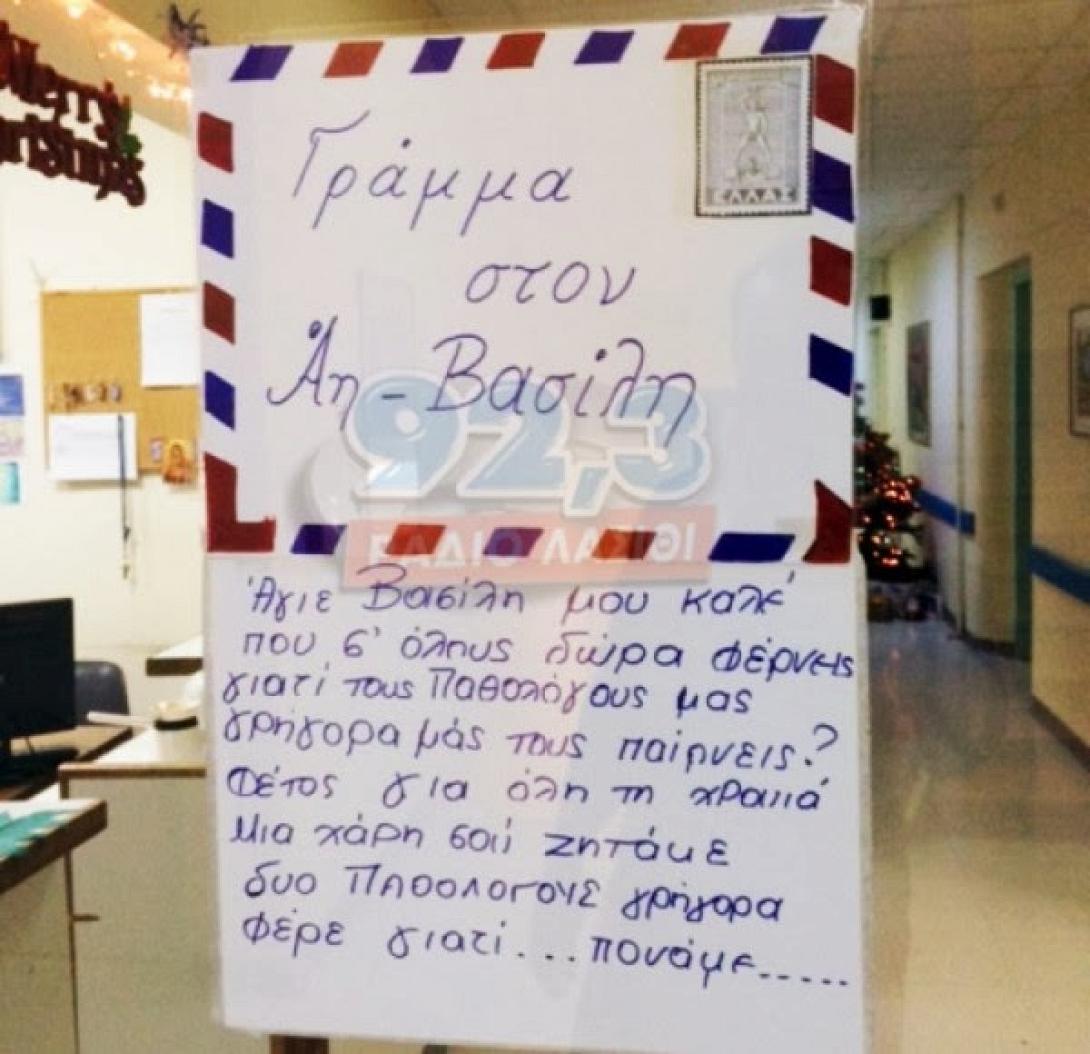 Merry
Christmas
ΕΛΛΑΣ
Γράμμα
στον
Άη - Βασίλη
92,3
ΡΑΔΙΟ ΛΑΣΙΘΙ
Άγιε Βασίλη μου καλέ
που σ' όλους δώρα φέρνεις
γιατί τους Παθολόγους μας
γρήγορα μάς τους παίρνεις?
Φέτος για όλη τη χρονιά
Μια χάρη σού ζητάμε
δυο Παθολόγους γρήγορα
φέρε γιατί... πονάμε.....